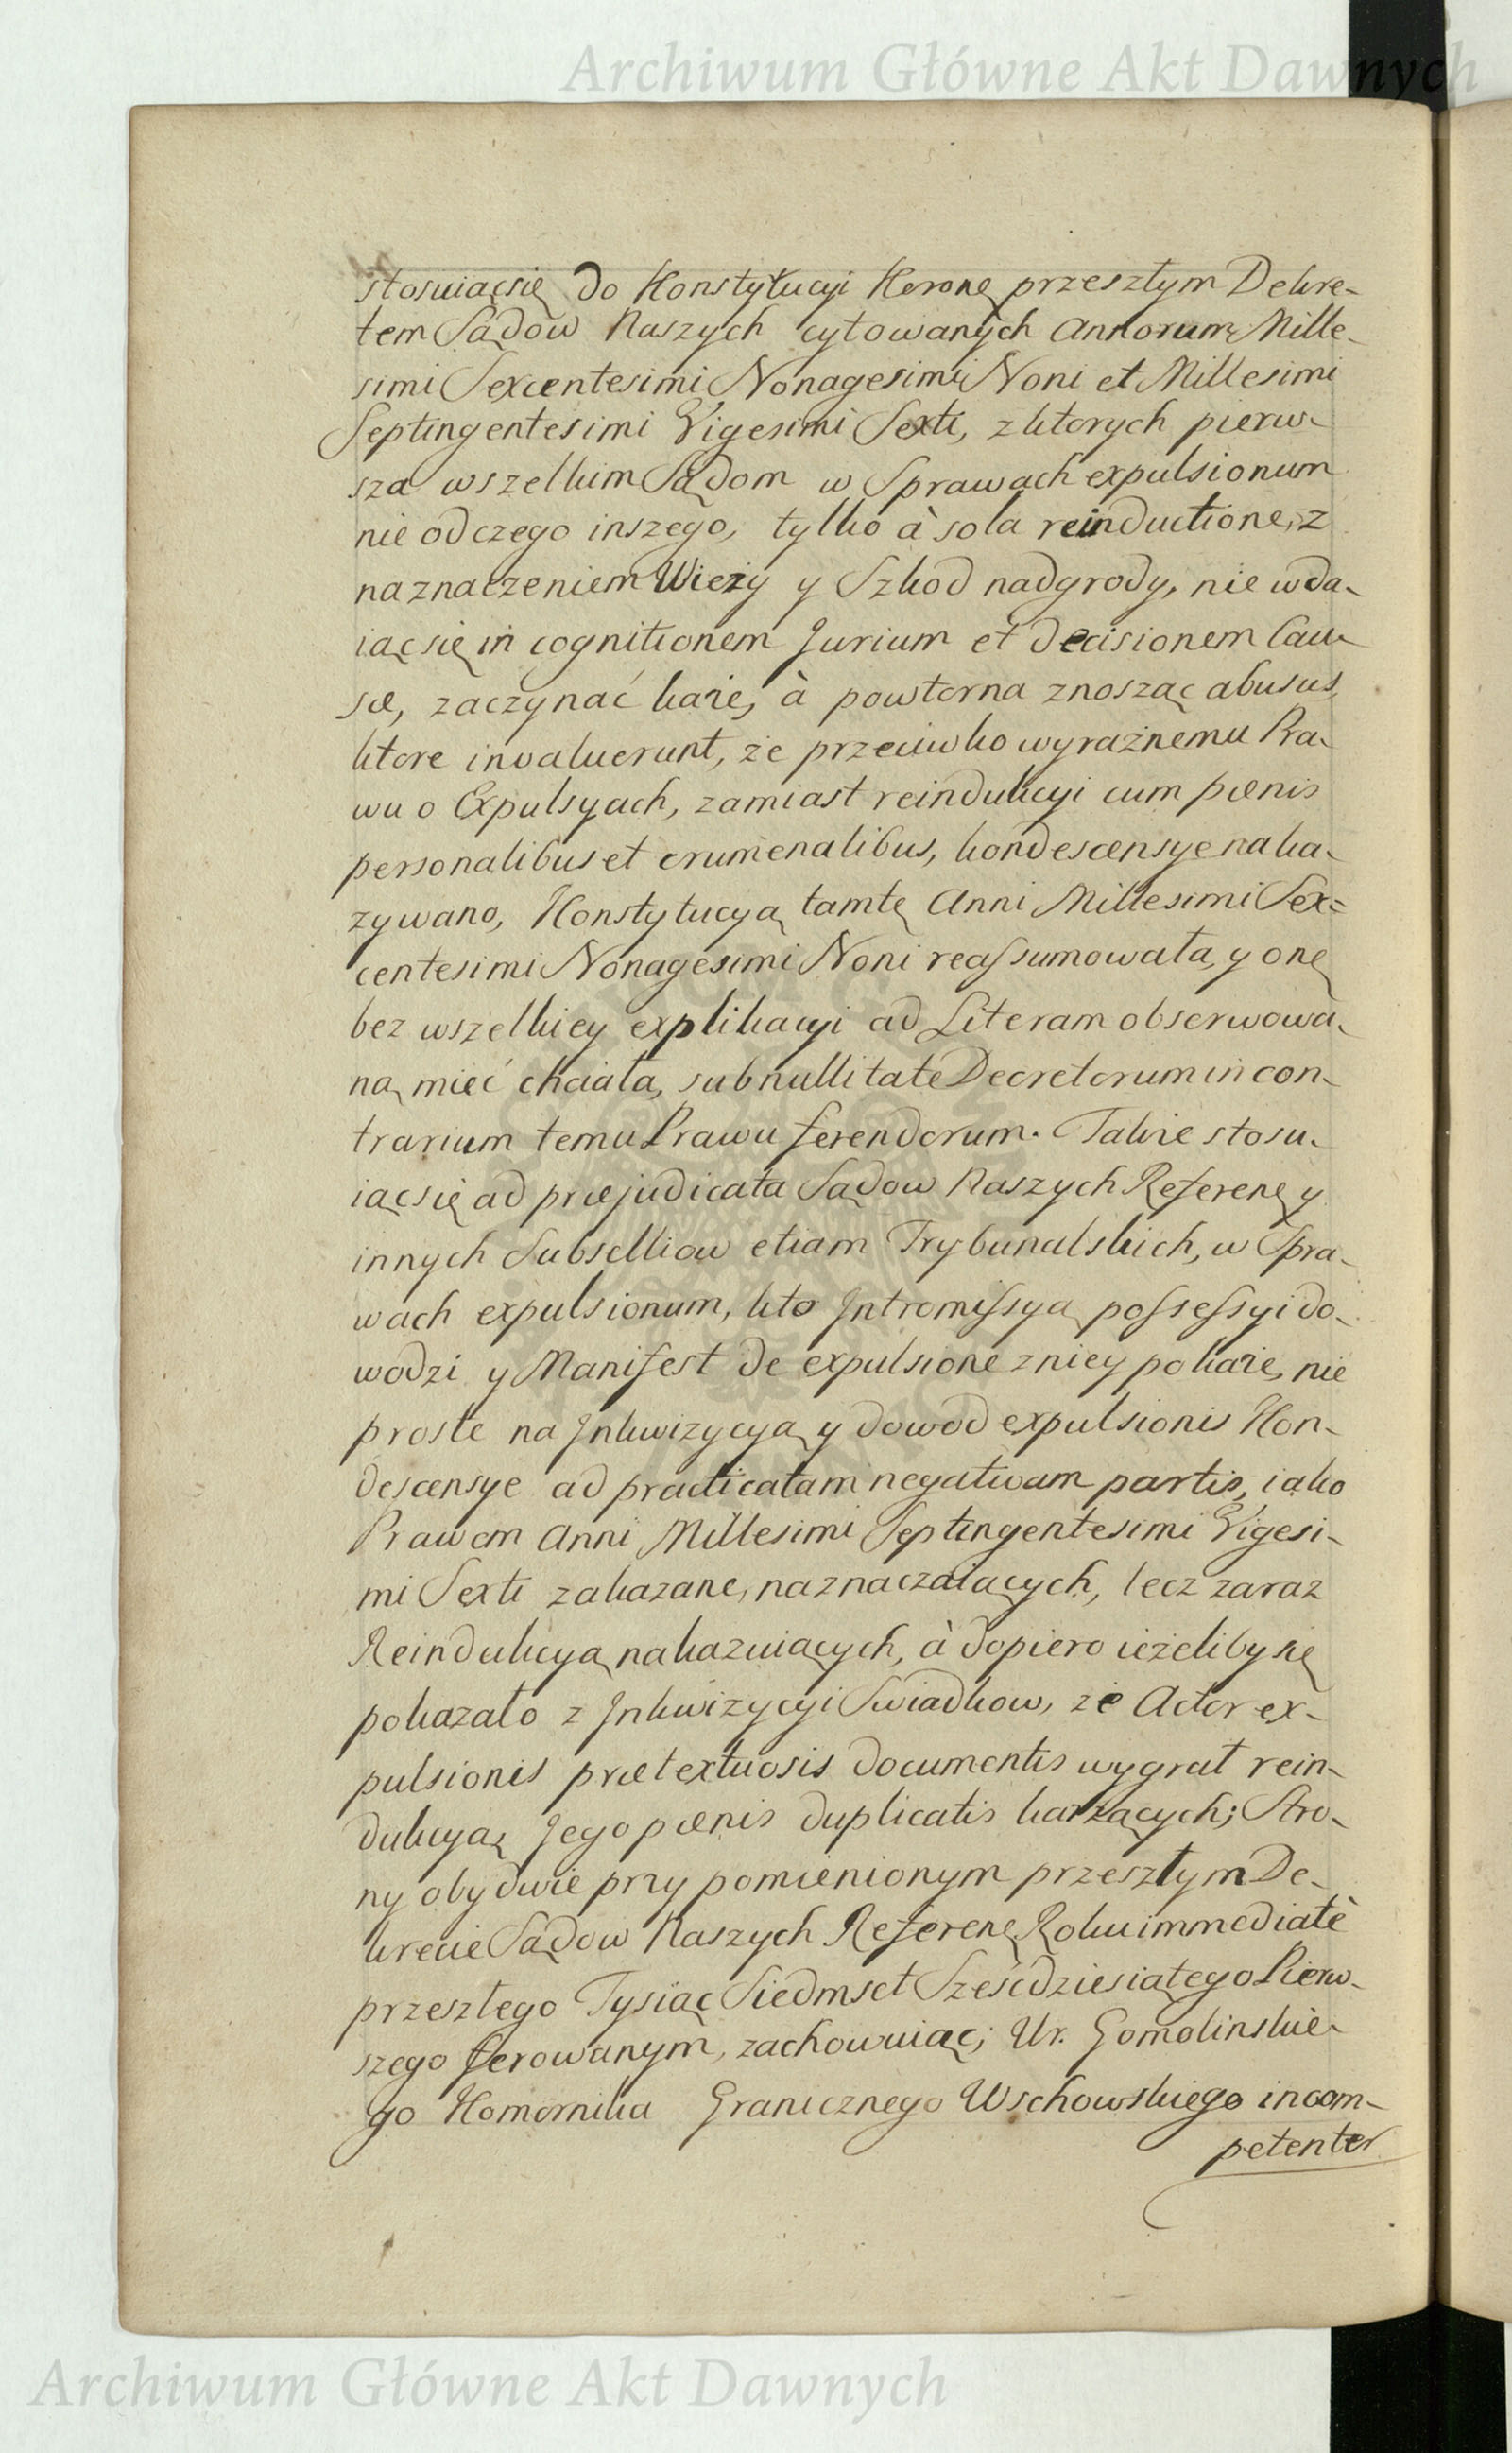 Archiwum Główne Akt Dawnych
stosuiąc się do Konstytucyi Koronę przeszłym Dekre-
tem Sądow Naszych cytowanych Annorum Mille-
simi Sexcentesimi Nonagesimi Noni et Millesimi
Septingentesimi Vigesimi Sexti, z ktorych pierw-
sza wszelkim Sądom w Sprawach expulsionum
nie od czego inszego, tylko à sola reinductione, z
naznaczeniem Wieży y Szkod nadgrody, nie wda-
iąc się in cognitionem Jurium et decisionem Cau-
sæ, zaczynać każe, à powtorna znosząc abusus,
ktore invaluerunt, że przeciwko wyraźnemu Pra-
wu o Expulsyach, zamiast reindukcyi cum pœnis
personalibus et crumenalibus, kondescensye naka-
zywano, Konstytucyą tamtę Anni Millesimi Sex=
centesimi Nonagesimi Noni reassumowała, y onę
bez wszelkiey explikacyi ad Literam obserwowa-
ną mieć chciała, sub nullitate Decretorum in con-
trarium temu Prawu ferendorum. Takie stosu-
iąc się ad præjudicata Sądow Naszych Referenę y
innych Subselliow etiam Trybunalskich, w Spra-
wach expulsionum, kto Jntromissyą possessyi do-
wodzi y Manifest de expulsione z niey pokaże, nie
proste na Jnkwizycyą y dowod expulsionis Kon-
descensye ad practicatam negativam partis, iako
Prawem Anni Millesimi Septingentesimi Vigesi-
mi Sexti zakazane, naznaczaiących, lecz zaraz
Reindukcyą nakazuiących, à dopiero ieżeliby się
pokazało z Jnkwizycyi Swiadkow, że Actor ex-
pulsionis prætextuosis documentis wygrał rein-
dukcyą, Jego pœnis duplicatis karzących; Stro-
ny obydwie przy pomienionym przeszłym De-
krecie Sądow Naszych Referenę Roku immediatè
przeszłego Tysiąc Siedmset Sześćdziesiątego Pierw-
szego ferowanym, zachowuiąc; Ur. Gomolinskie-
go Komornika Granicznego Wschowskiego incom-
petenter
Archiwum Główne Akt Dawnych